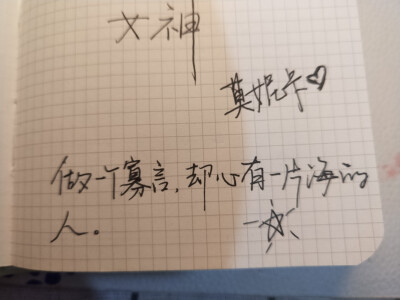 女神
莫妮卡♡
做一个寡言,却心有一片海的
人。